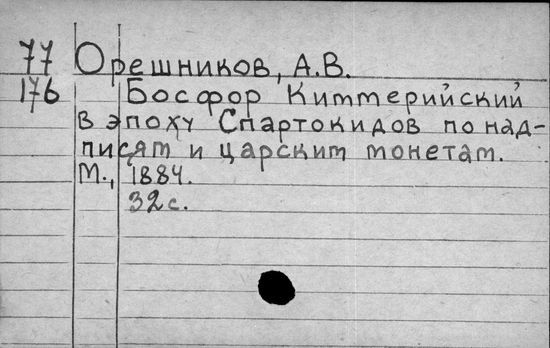 77 Орешников, А.В.
176 Босфор Киммерийский
в эпоху Спартокидов по над-
писям и царским монетам.
М., 1884.
32 с.